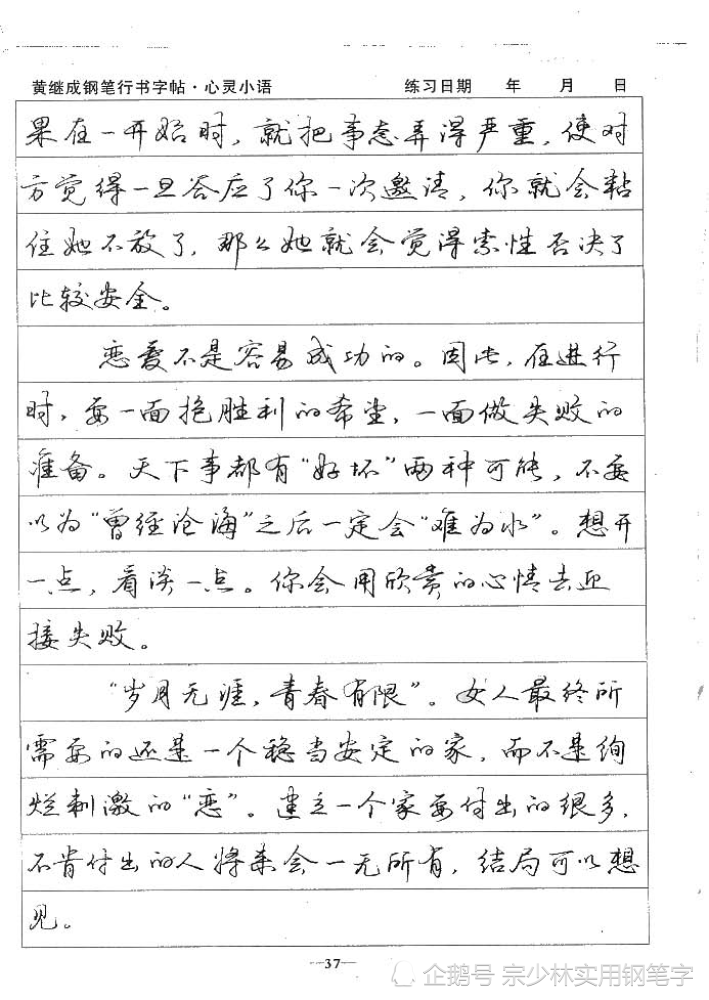 黄继成钢笔行书字帖·心灵小语 练习日期 年 月 日
果在一开始时，就把事态弄得严重，使对
方觉得一旦答应了你一次邀请，你就会粘
住她不放了，那么她就会觉得索性否决了
比较安全。
恋爱不是容易成功的。因此，在进行
时，要一面抱胜利的希望，一面做失败的
准备。天下事都有“好坏”两种可能，不要
以为“曾经沧海”之后一定会“难为水”。想开
一点，看淡一点。你会用欣赏的心情去迎
接失败。
“岁月无涯，青春有限”。女人最终所
需要的还是一个稳当安定的家，而不是绚
烂刺激的“恋”。建立一个家要付出的很多，
不肯付出的人将来会一无所有，结局可以想
见。
—37—
企鹅号 宗少林实用钢笔字